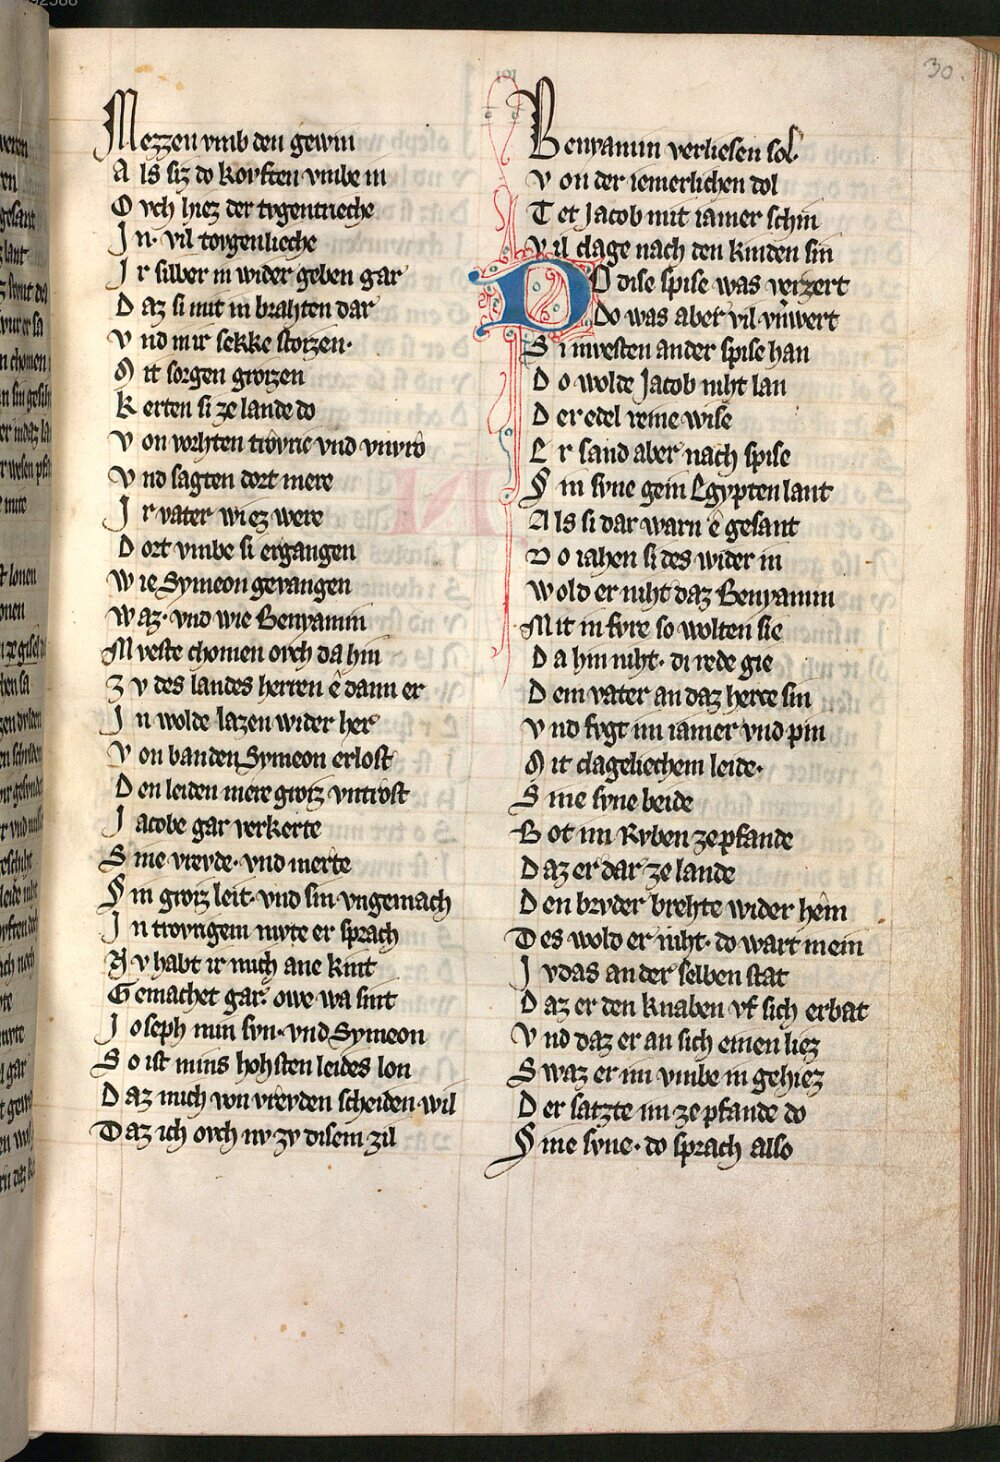 30.
Mezzen vmb den gewin
Als siz do koyften vmbe in
Ovch hiez der tvgentrieche
In. vil tovgenlieche
Ir silber in wider geben gar
Daz si mit in brahten dar
Vnd in ir sekke stozen.
Mit sorgen grozen
Kerten si ze lande do
Von vorhten trovric vnd vnvro
Vnd sagten dort mere
Ir vater wi ez were
Dort vmbe si ergangen
Wie Symeon gevangen
Waz. vnd wie Benyamin
Mveste chomen ovch da hin
Zv des landes herren ê dann er
In wolde lazen wider her
Von banden Symeon erlost
Den leiden mere groz vntrost
Jacobe gar verkerte
Sine vrevde. vnd merte
Sin groz leit. vnd sin vngemach
In trovrigem mvte er sprach
Nv habt ir mich ane kint
Gemachet gar. owe wa sint
Joseph min svn. vnd Symeon
So ist mins hohsten leides lon
Daz mich von vrevden scheiden wil
Daz ich ovch nv zv disem zil
Benyamin verliesen sol.
Von der iemerlichen dol
Tet Jacob mit iamer schin
Vil clage nach den kinden sin
DO dise spise was verzert
Do was aber vil vnwert
Si mvesten ander spise han
Do wolde Jacob niht lan
Der edel reine wise
Er sand aber nach spise
Sin svne gein Egypten lant
Als si dar warn ê gesant
Do iahen si des wider in
Wold er niht daz Benyamin
Mit in fvre so wolten sie
Da hin niht. di rede gie
Dem vater an daz herce sin
Vnd fvgt im iamer vnd pin
Mit clageliechem leide.
Sine svne beide
Bot im Rvben ze pfande
Daz er dar ze lande
Den brvder brehte wider heim
Des wold er niht. do wart mein
Jvdas an der selben stat
Daz er den knaben vf sich erbat
Vnd daz er an sich einen liez
Swaz er im vmbe in gehiez
Der satzte im ze pfande do
Sine svne. do sprach also